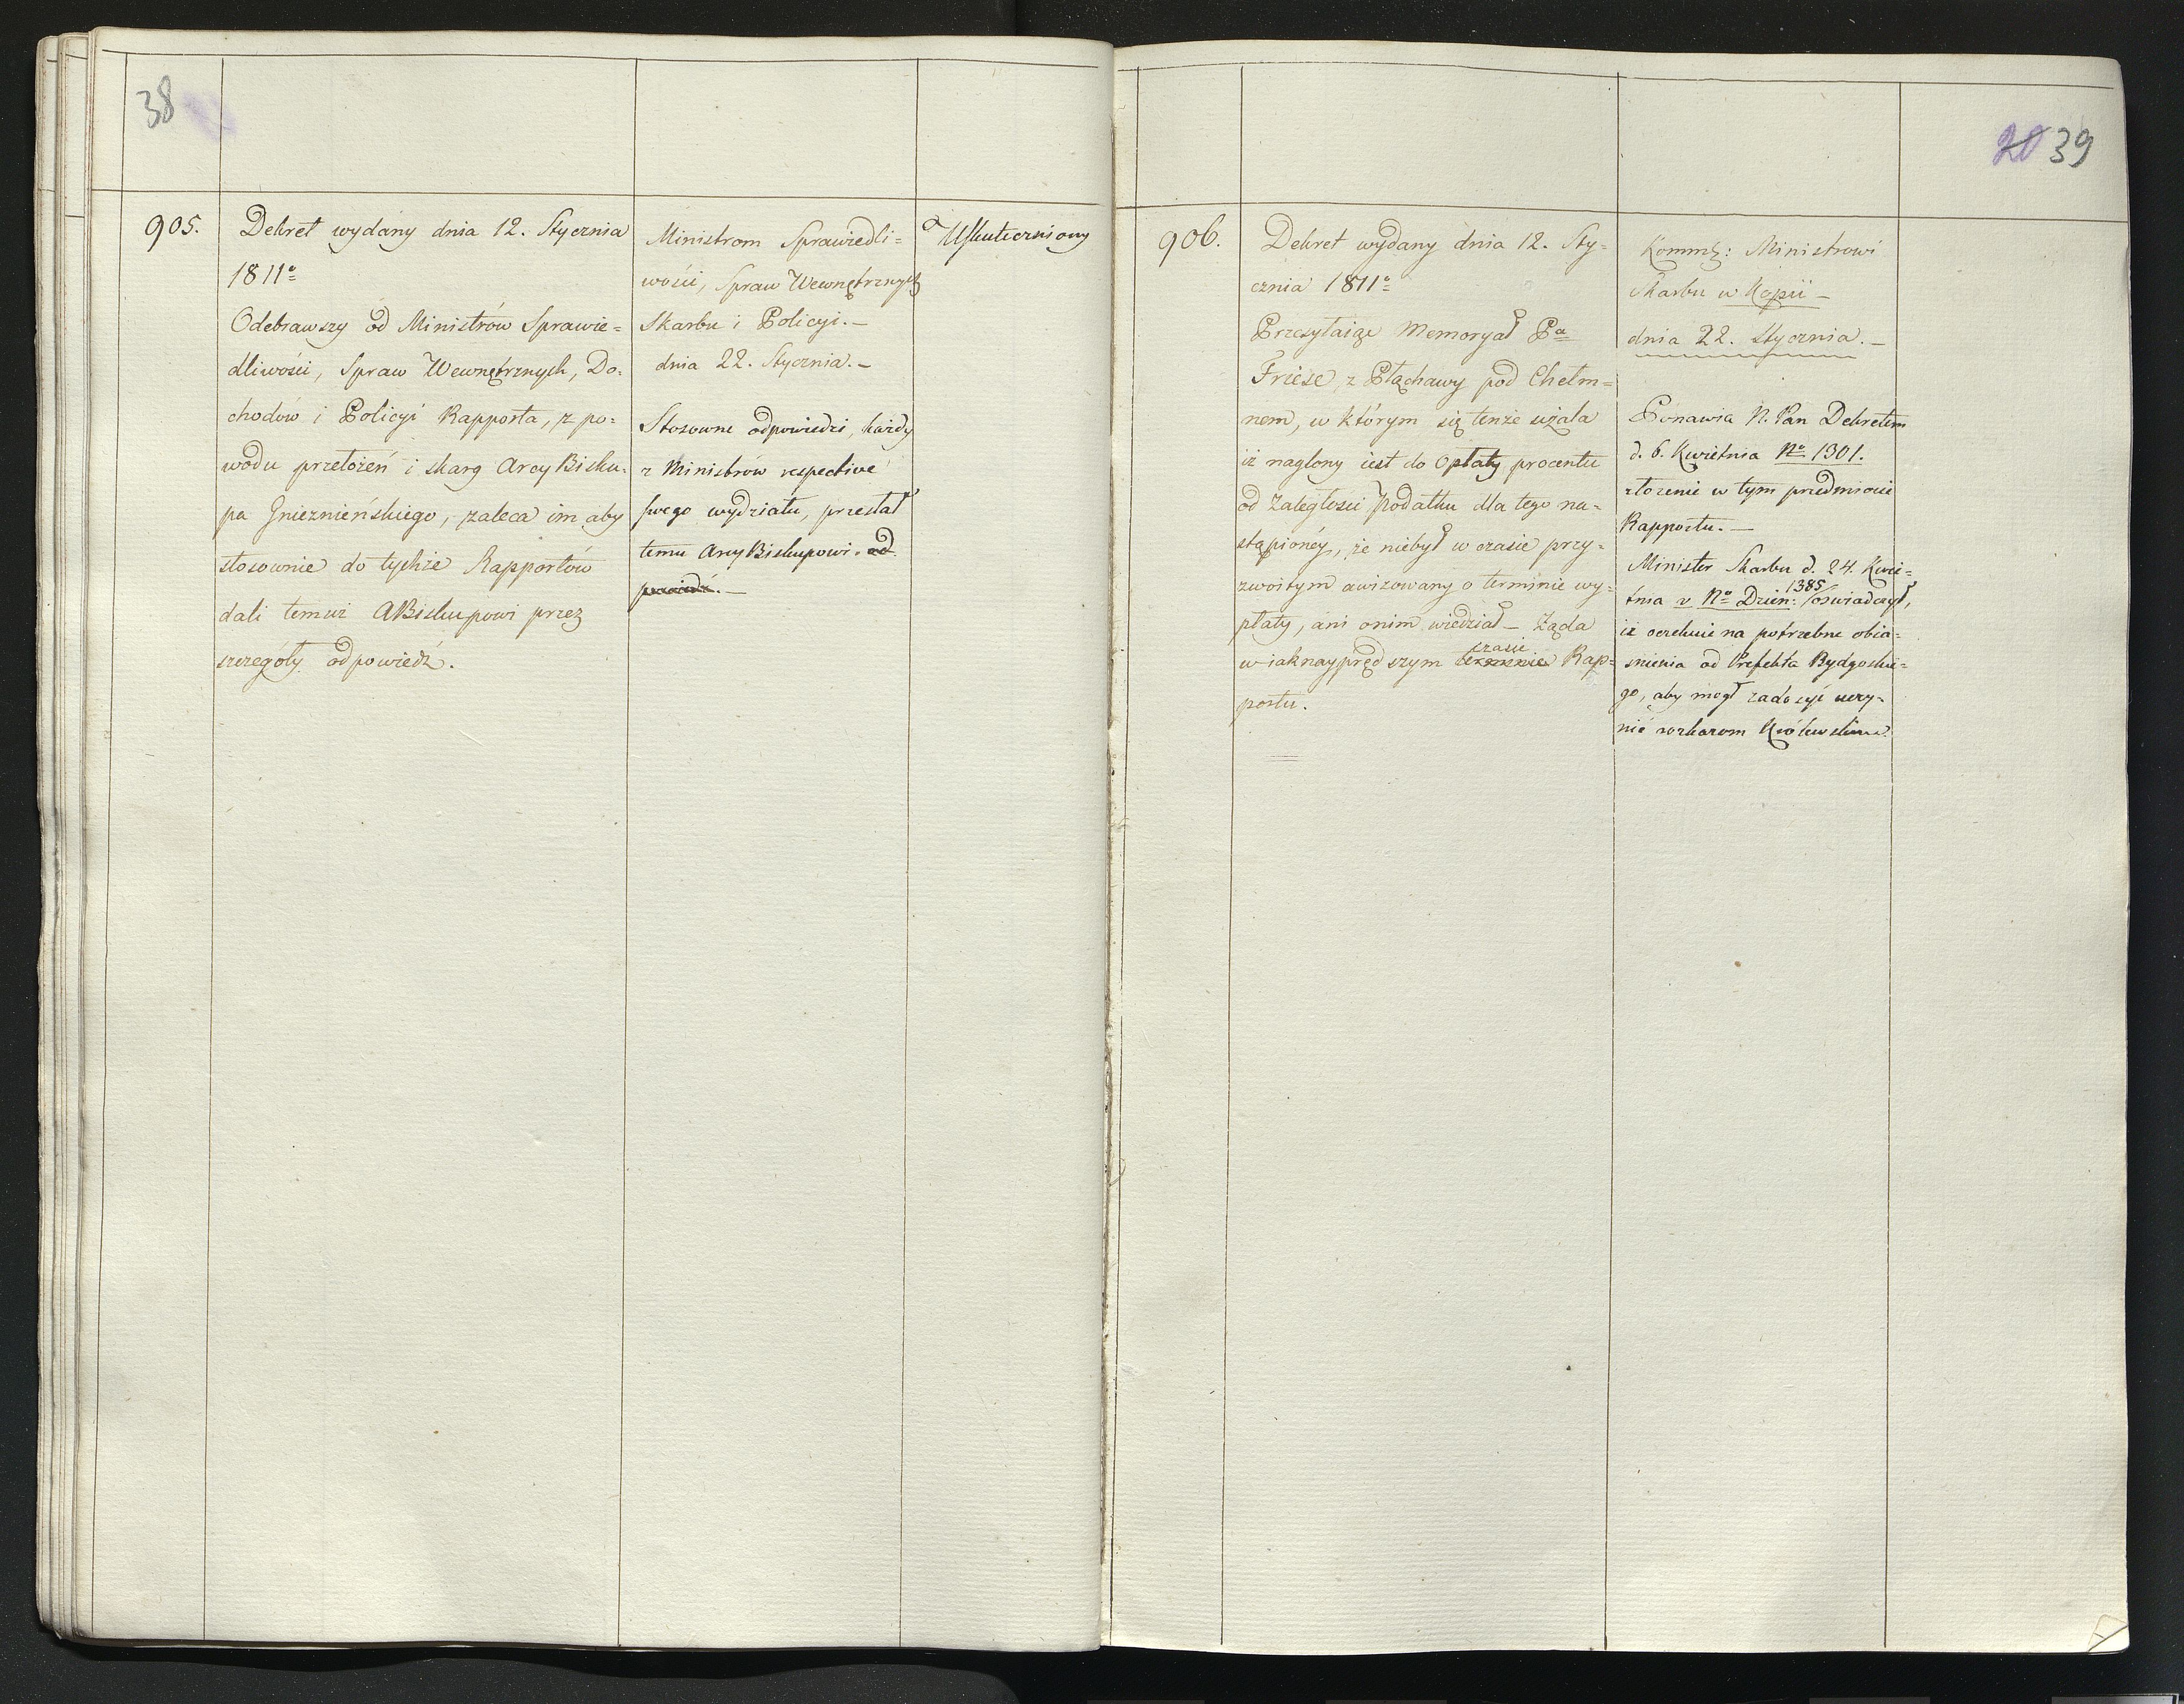 38
905.
Dekret wydany dnia 12. Stycznia
1811o
Odebrawszy od Ministrów Sprawie=
dliwości, Spraw Wewnętrznych, Do=
chodów i Policyi Rapporta, z po=
wodu przełożeń i skarg Arcy Bisku=
pa Gnieznieńskiego, zaleca im aby
stosownie do tychże Rapportów
dali temuż ABiskupowi przez
szczegóły odpowiedź.
Ministrom Sprawiedli=
wości, Spraw Wewnętrznych
Skarbu i Policyi. —
dnia 22. Stycznia. —
Stosowne odpowiedzi, każdy
z Ministrów respective
swego wydziału, przesłał
temu Arcy Biskupowi. od
powiedź. —
Uskuteczniony
20 39
906.
Dekret wydany dnia 12. Sty=
cznia 1811o
Przesyłaiąc Memoryał Pa
Friese, z Płąchawy pod Chełm=
nem, w którym się tenże użala
iż naglony iest do Opłaty procentu
od Zaległości Podatku dla tego na=
stąpionéy, że niebył w czasie przy=
zwoitym awizowany o terminie wy=
płaty, ani onim wiedział — Żąda
w iaknayprędszym czasie Rap=
portu.
Kommk: Ministrowi
Skarbu w Kopii —
dnia 22. Stycznia. —
Ponawia N. Pan Dekretem
d. 6. Kwietnia No 1301.
złożenie w tym przedmiocie
Rapportu. —
Minister Skarbu d. 24. Kwie=
tnia v. No Dzien: 1385 oświadczył,
iż oczekuie na potrzebne obia=
snienia od Prefekta Bydgoskie=
go, aby mogł zadosyć uczy=
nić rozkazom Królewskim.